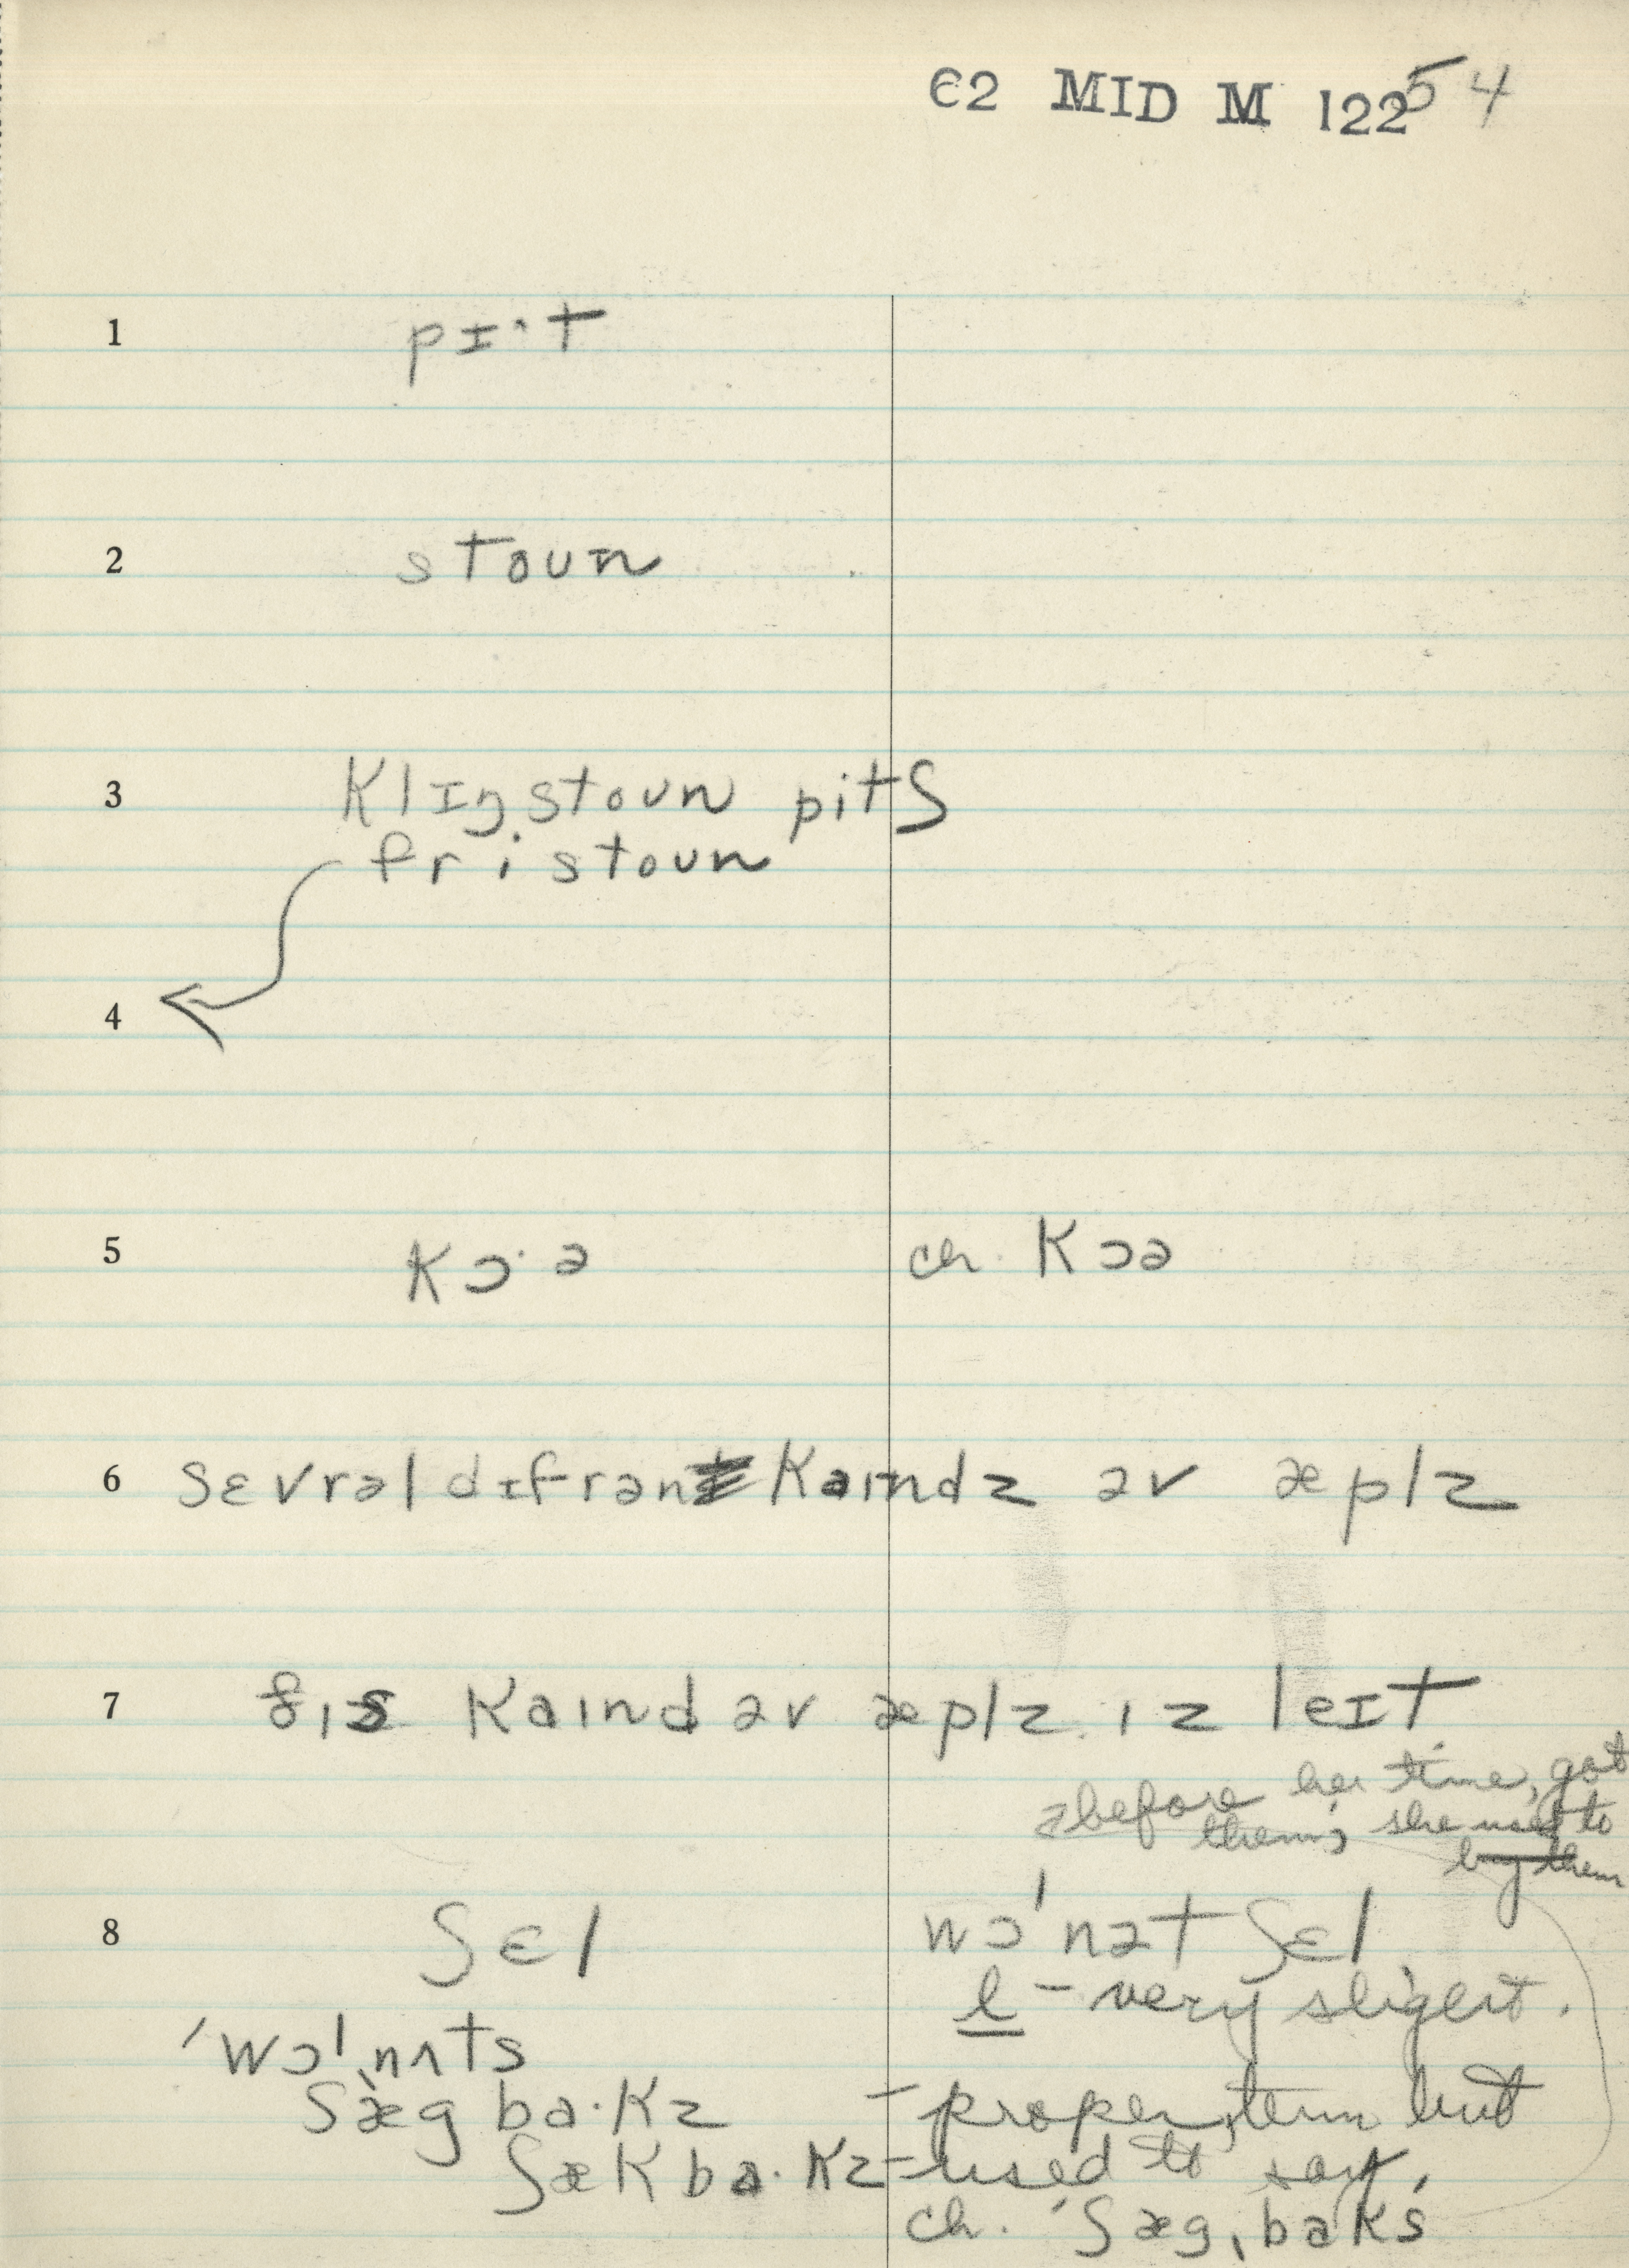 C2 MID M 122 54
1 pɪ·t
2 stoun
3 klɪŋstoun pitʃ
fristoun
4
5 kɔ·ə ch. kɔə
6 sɛvrəl dɪfrənt kaindz əv æplz
7 ðis kaind əv æplz iz leɪt
before her time, got
them; she used to
buy them
8 ʃɛl wɔ'nət ʃɛl
l - very slight.
'wɔlˌnʌts
ʃæg ba·kz - proper term but
ʃæk ba·kz - used to say,
ch. 'ʃægˌbaks